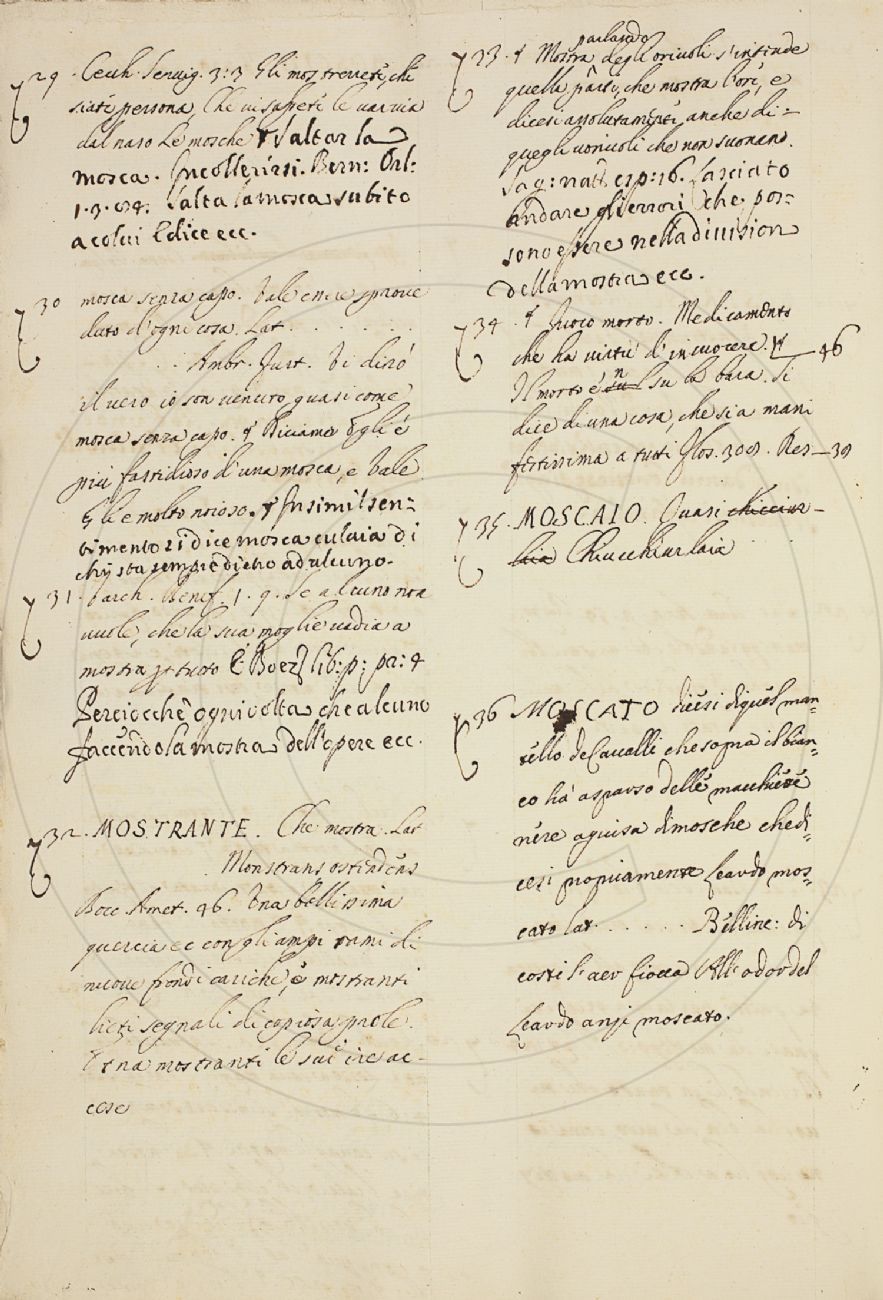 29. Cecch. Servig. 3: 3 Gli mostrerrete, chi
siate persona, Che vi sapete levar via
dal naso Le mosche ¶ Saltar la
mosca. Incollerirsi. Bern: Orl:
1. 3. 84. Salta la mosca subito
a colui E dice ecc.
30 mosca senza capo. Vale
duto d'ogni cosa. Lat. . . . . . .
. . Ambr. Furt. Vi dirò
il vero io son venuto quasi come
mosca senza capo. ¶ Diciamo Egli è
più fastidioso d'una mosca, e Vale
Gli è molto noioso. ¶ In simil sen=
timento si dice mosca culaia di
chi sta sempre dietro ad alcuno.
31. Varch. Benef. 1. 9. Se alcuno non
vuole, che la sua moglie vadia a
mostra per tutto E Boez lib: p: pr: 4
Perciocchè ogni volta che alcuno
faccendo la mostra dell'opere ecc.
32. MOSTRANTE. Che mostra. Lat
Monstrans ostendens
Bocc Amet. 46. Una bellissima
quercia ec con gli ampi rami di
nuove frondi cariche, e mostranti
lieti segnali di copiosa prole.
Etna mostranti le sue ire ac-
cese
parlando
33. ¶ Mostra degli orivoli s'intende
quella parte, che mostra l'ore, e
dicesi assolutamente anche di=
quegli orivoli che non suonano.
Sag: nat: esp: 16. Lasciato
andare gli errori che pos=
sono essere nella division
della mostra ecc.
34. ¶ Fuoco morto. Medicamento
che ha virtù d'incuocere. ¶ 46
Il morto è in su la bara. Si
dice di una cosa, che sia mani
festissima a tutti Flos. 308. Res 39
35. MOSCAIO. Quasi chiucciur-
laia Chiucchiurlaia
36 MOSCATO dicesi di quel man=
tello de Cavalli che sopra il bian=
co ha asparso delle macchiete
nere a guisa di mosche che di=
cesi propriamente Leardo mos=
cato lat. . . . . . . Bellinc: di
costì l'aer fiocca All' odor del
Leardo anzi moscato.